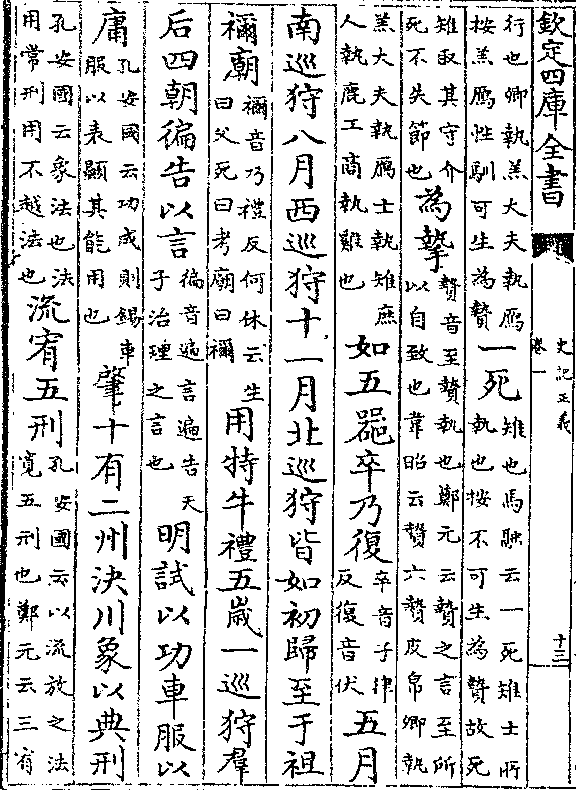 欽定四庫全書
史記正義
卷一
十三
行也卿執羔大夫執鴈按羔鴈性馴可生為贄一死雉也馬融云一死雉士所執也按不可生為贄故死
雉取其守介死不失節也為摯贄音至贄執也鄭元云贄之言至所以自致也韋昭云贄六贄皮帛卿執
羔大夫執鴈士執雉庶人執鹿工商執雞也如五器卒乃復卒音子律反復音伏五月
南巡狩八月西巡狩十一月北巡狩皆如初歸至于祖
禰廟禰音乃禮反何休云生曰父死曰考廟曰禰用特牛禮五嵗一巡狩羣
后四朝徧告以言徧音遍言遍告天子治理之言也明試以功車服以
庸孔安國云功成則錫車服以表顯其能用也肇十有二州決川象以典刑
孔安國云象法也法用常刑用不越法也流宥五刑孔安國云以流放之法寛五刑也鄭元云三宥